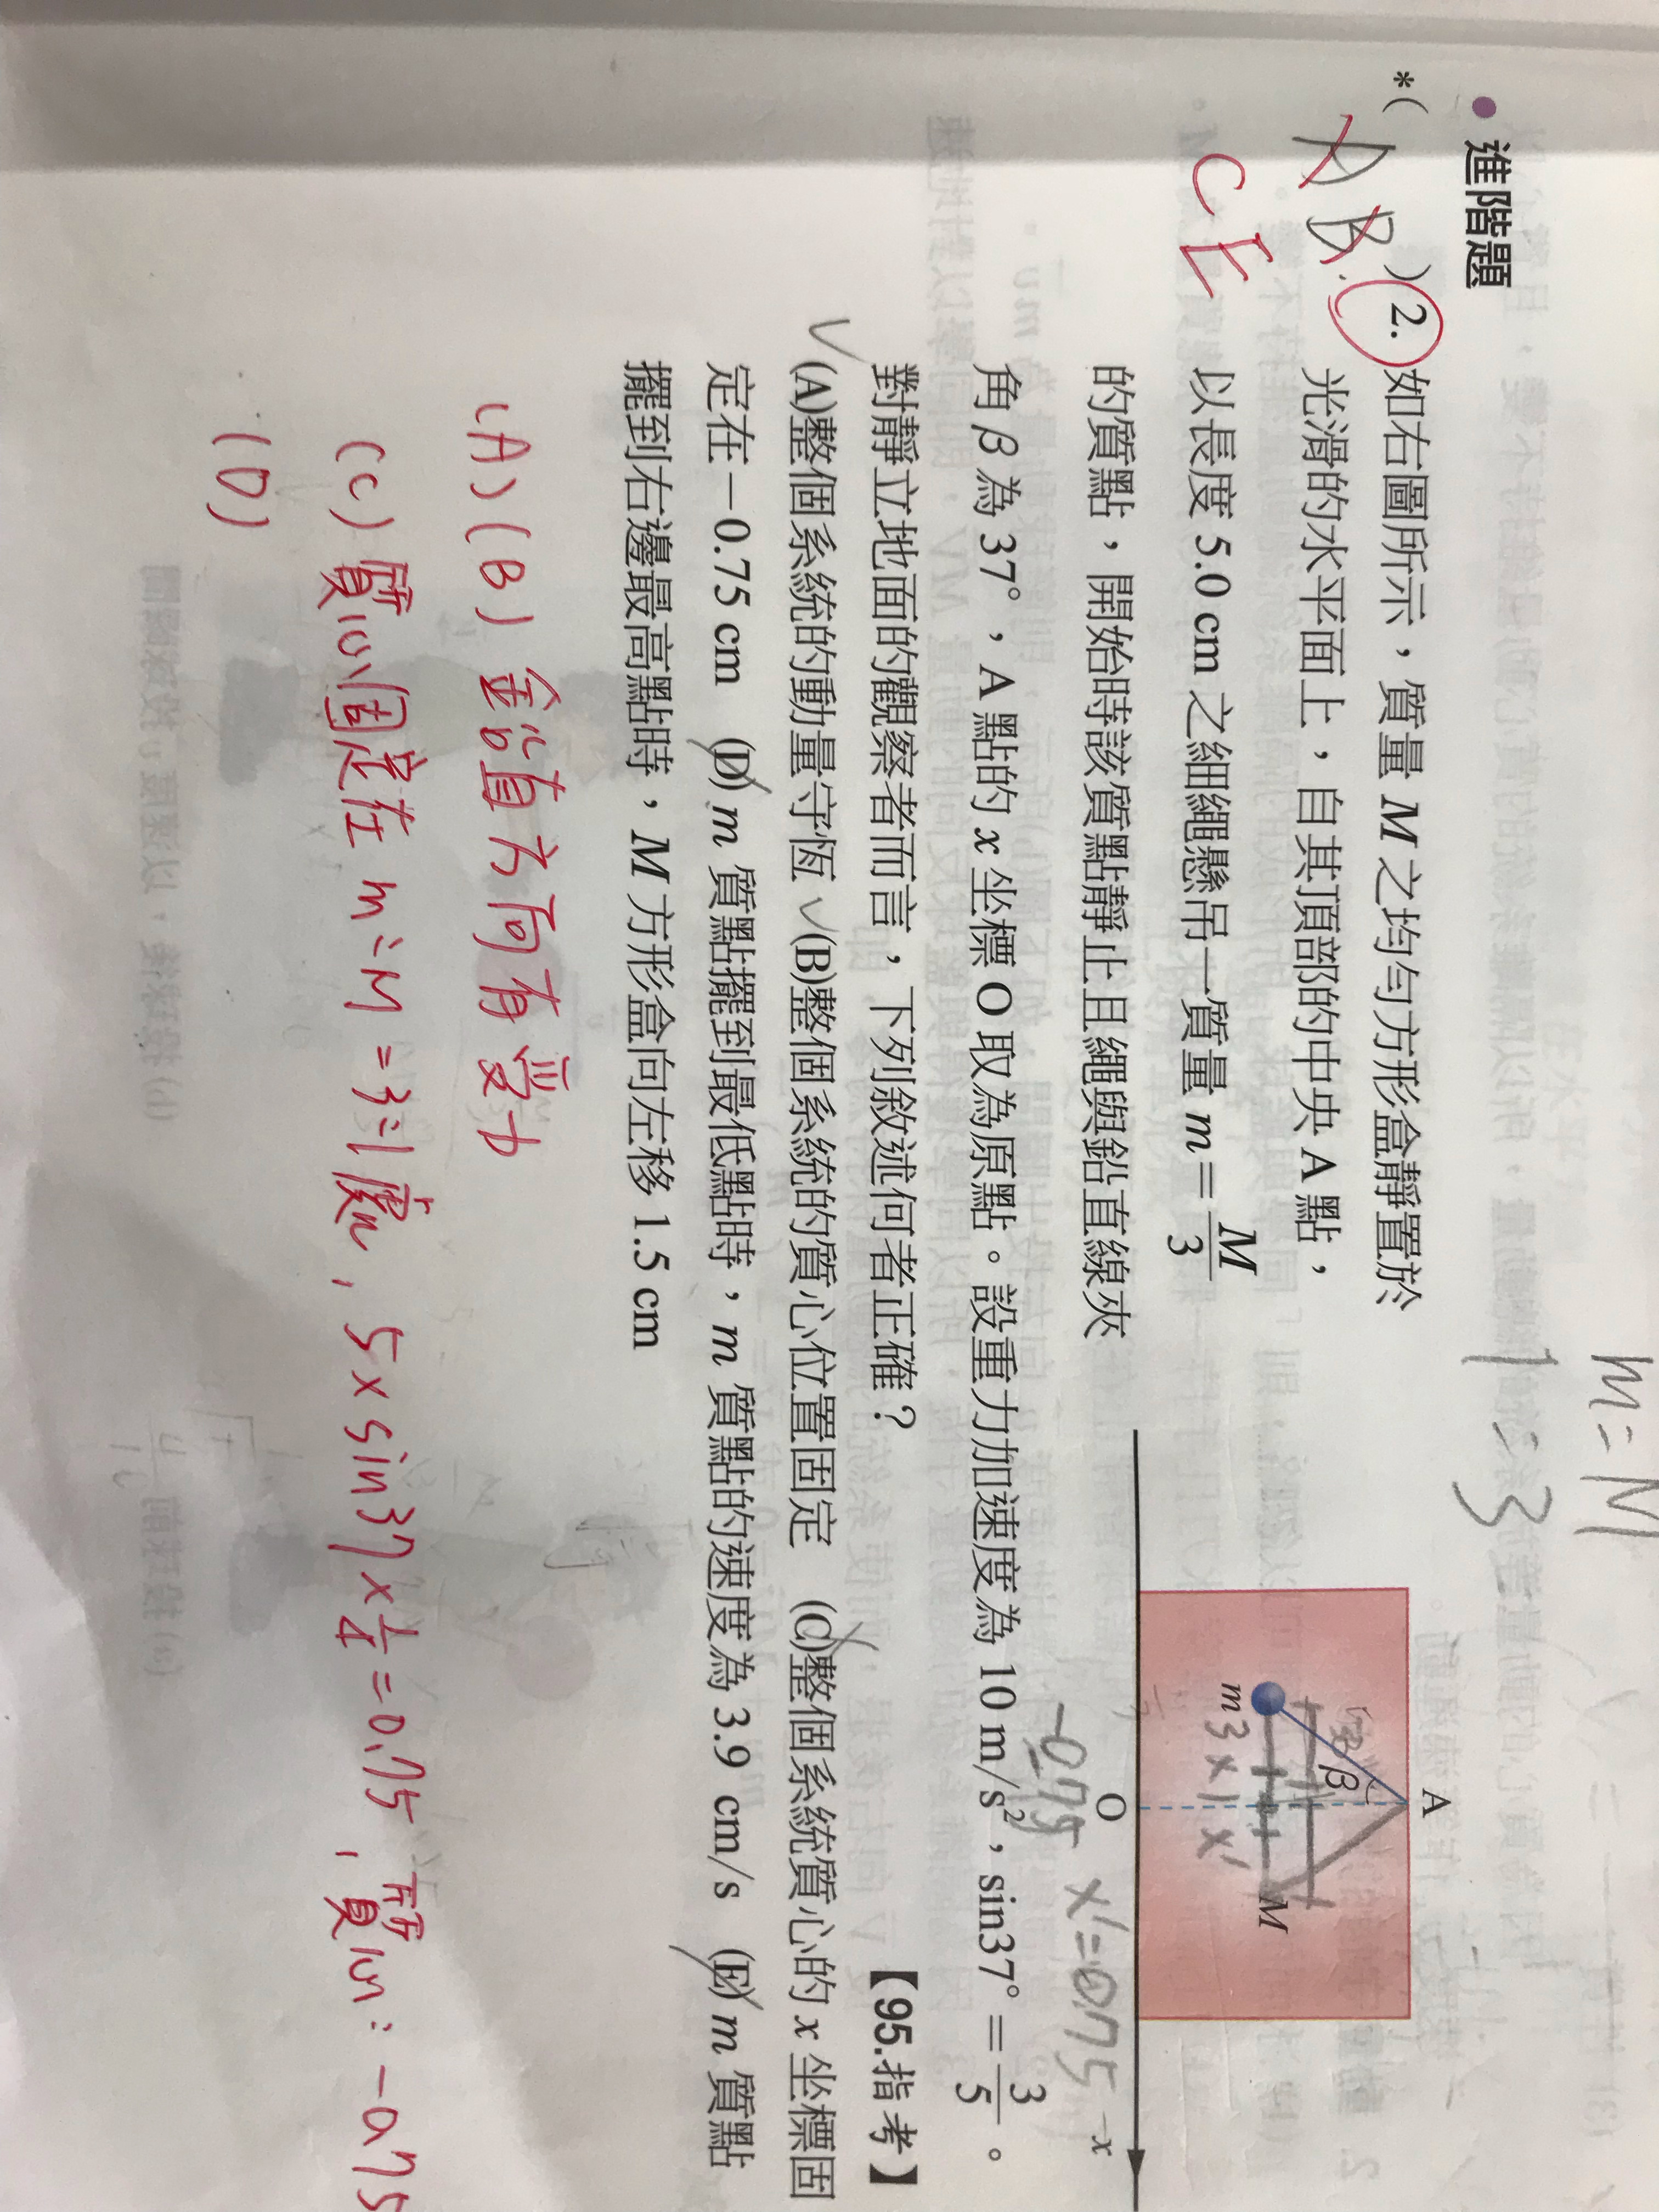 • 進階題
*( A B )2. 如右圖所示，質量 M 之均勻方形盒靜置於
C E
光滑的水平面上，自其頂部的中央 A 點，
以長度 5.0 cm 之細繩懸吊一質量 m＝M/3
的質點，開始時該質點靜止且繩與鉛直線夾
角 β 為 37°，A 點的 x 坐標 O 取為原點。設重力加速度為 10 m/s²，sin37°＝3/5。
對靜立地面的觀察者而言，下列敘述何者正確？ 【95.指考】
✓(A)整個系統的動量守恆 ✓(B)整個系統的質心位置固定 (C)整個系統質心的 x 坐標固
定在－0.75 cm (D) m 質點擺到最低點時，m 質點的速度為 3.9 cm/s (E) m 質點
擺到右邊最高點時，M 方形盒向左移 1.5 cm
m:M
1:3
A
β
m
M
3x
x'
O
x
-0.75
x'=0.75
(A)(B) 鉛直方向有受力
(C) 質心固定在 m:M=3:1處, 5×sin37×1/4=0.75, 質心:-0.75
(D)